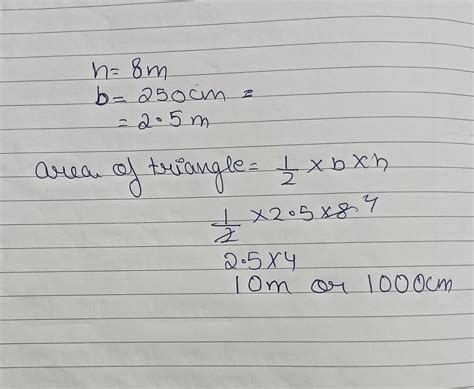 h= 8m
b= 250cm =
= 2.5m
area of triangle= 1/2 ×b×h
1/2 ×2.5×8 4
2.5×4
10m or 1000cm